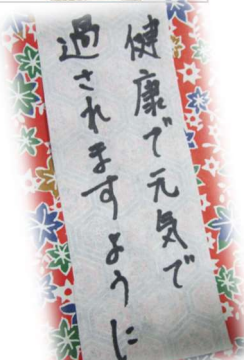 健康で元気で
過されますように